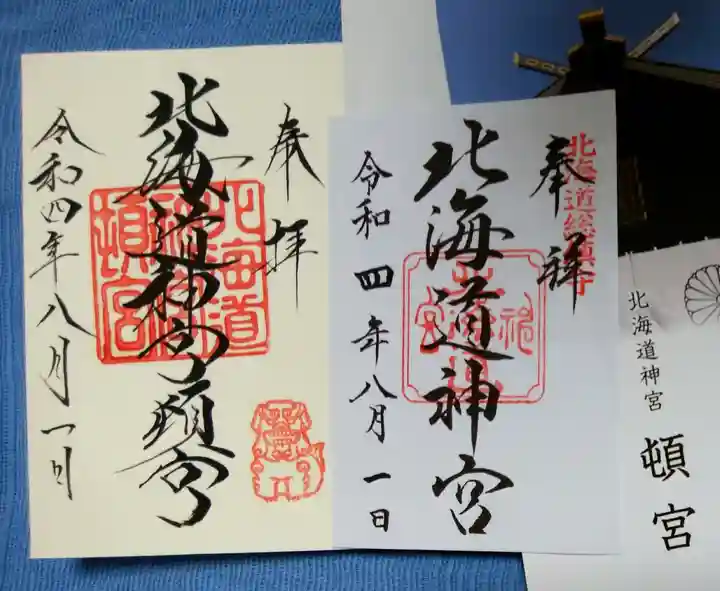 奉拝
北海道神宮頓宮
北海道神宮頓宮
令和四年八月一日
奉拝
北海道総鎮守
北海道神宮
令和四年八月一日
北海道神宮
頓宮